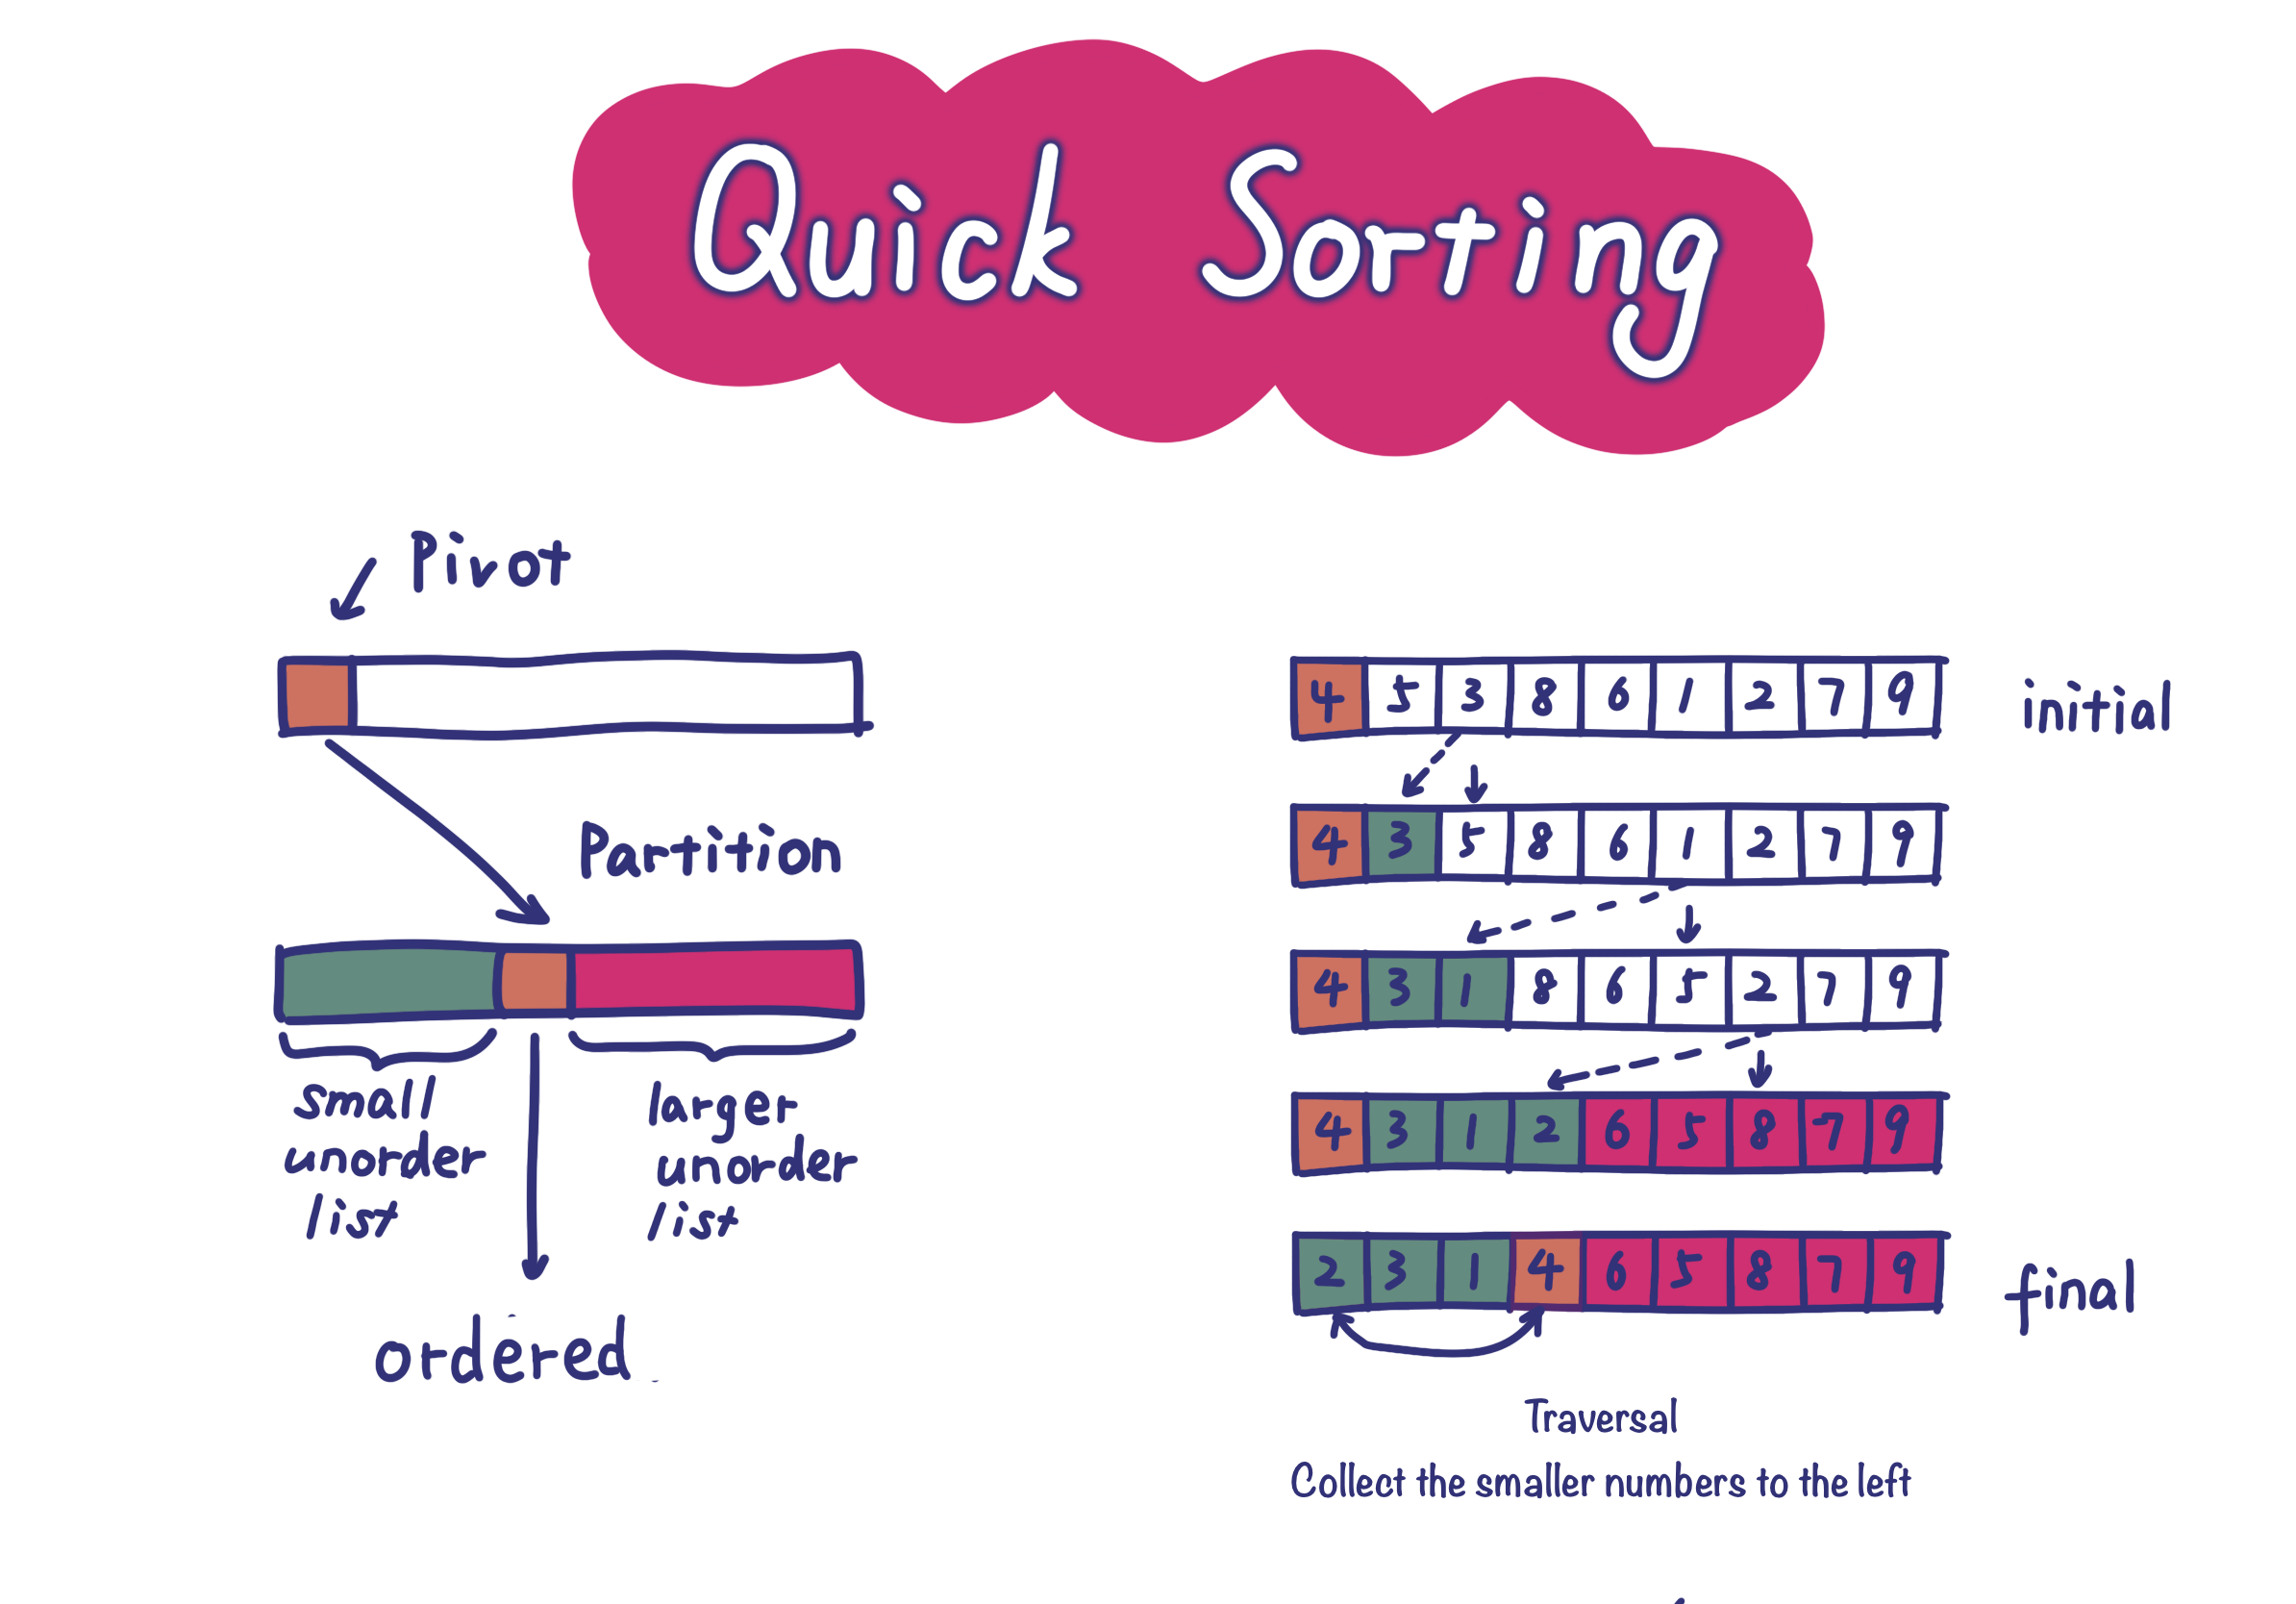 Quick Sorting
Pivot
Partition
small
unorder
list
larger
unorder
list
ordered
4 5 3 8 6 1 2 7 9
initial
4 3 5 8 6 1 2 7 9
4 3 1 8 6 5 2 7 9
4 3 1 2 6 5 8 7 9
2 3 1 4 6 5 8 7 9
final
Traversal
Collect the smaller numbers to the left